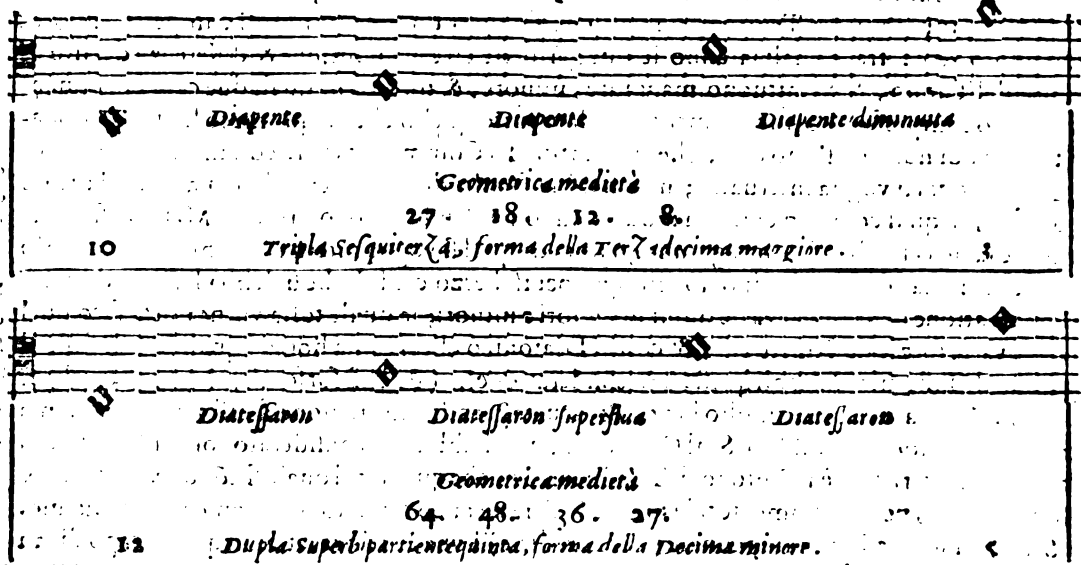 Diapente Diapente Diapente diminuita
Geometrica medietà
27. 18. 12. 8.
10 Tripla Sesquiterza, forma della Terzadecima maggiore. 3
Diatessaron Diatessaron superflua Diatessaron
Geometrica medietà
64. 48. 36. 27.
12 Dupla Superbipartientequinta, forma della Decima minore. 5